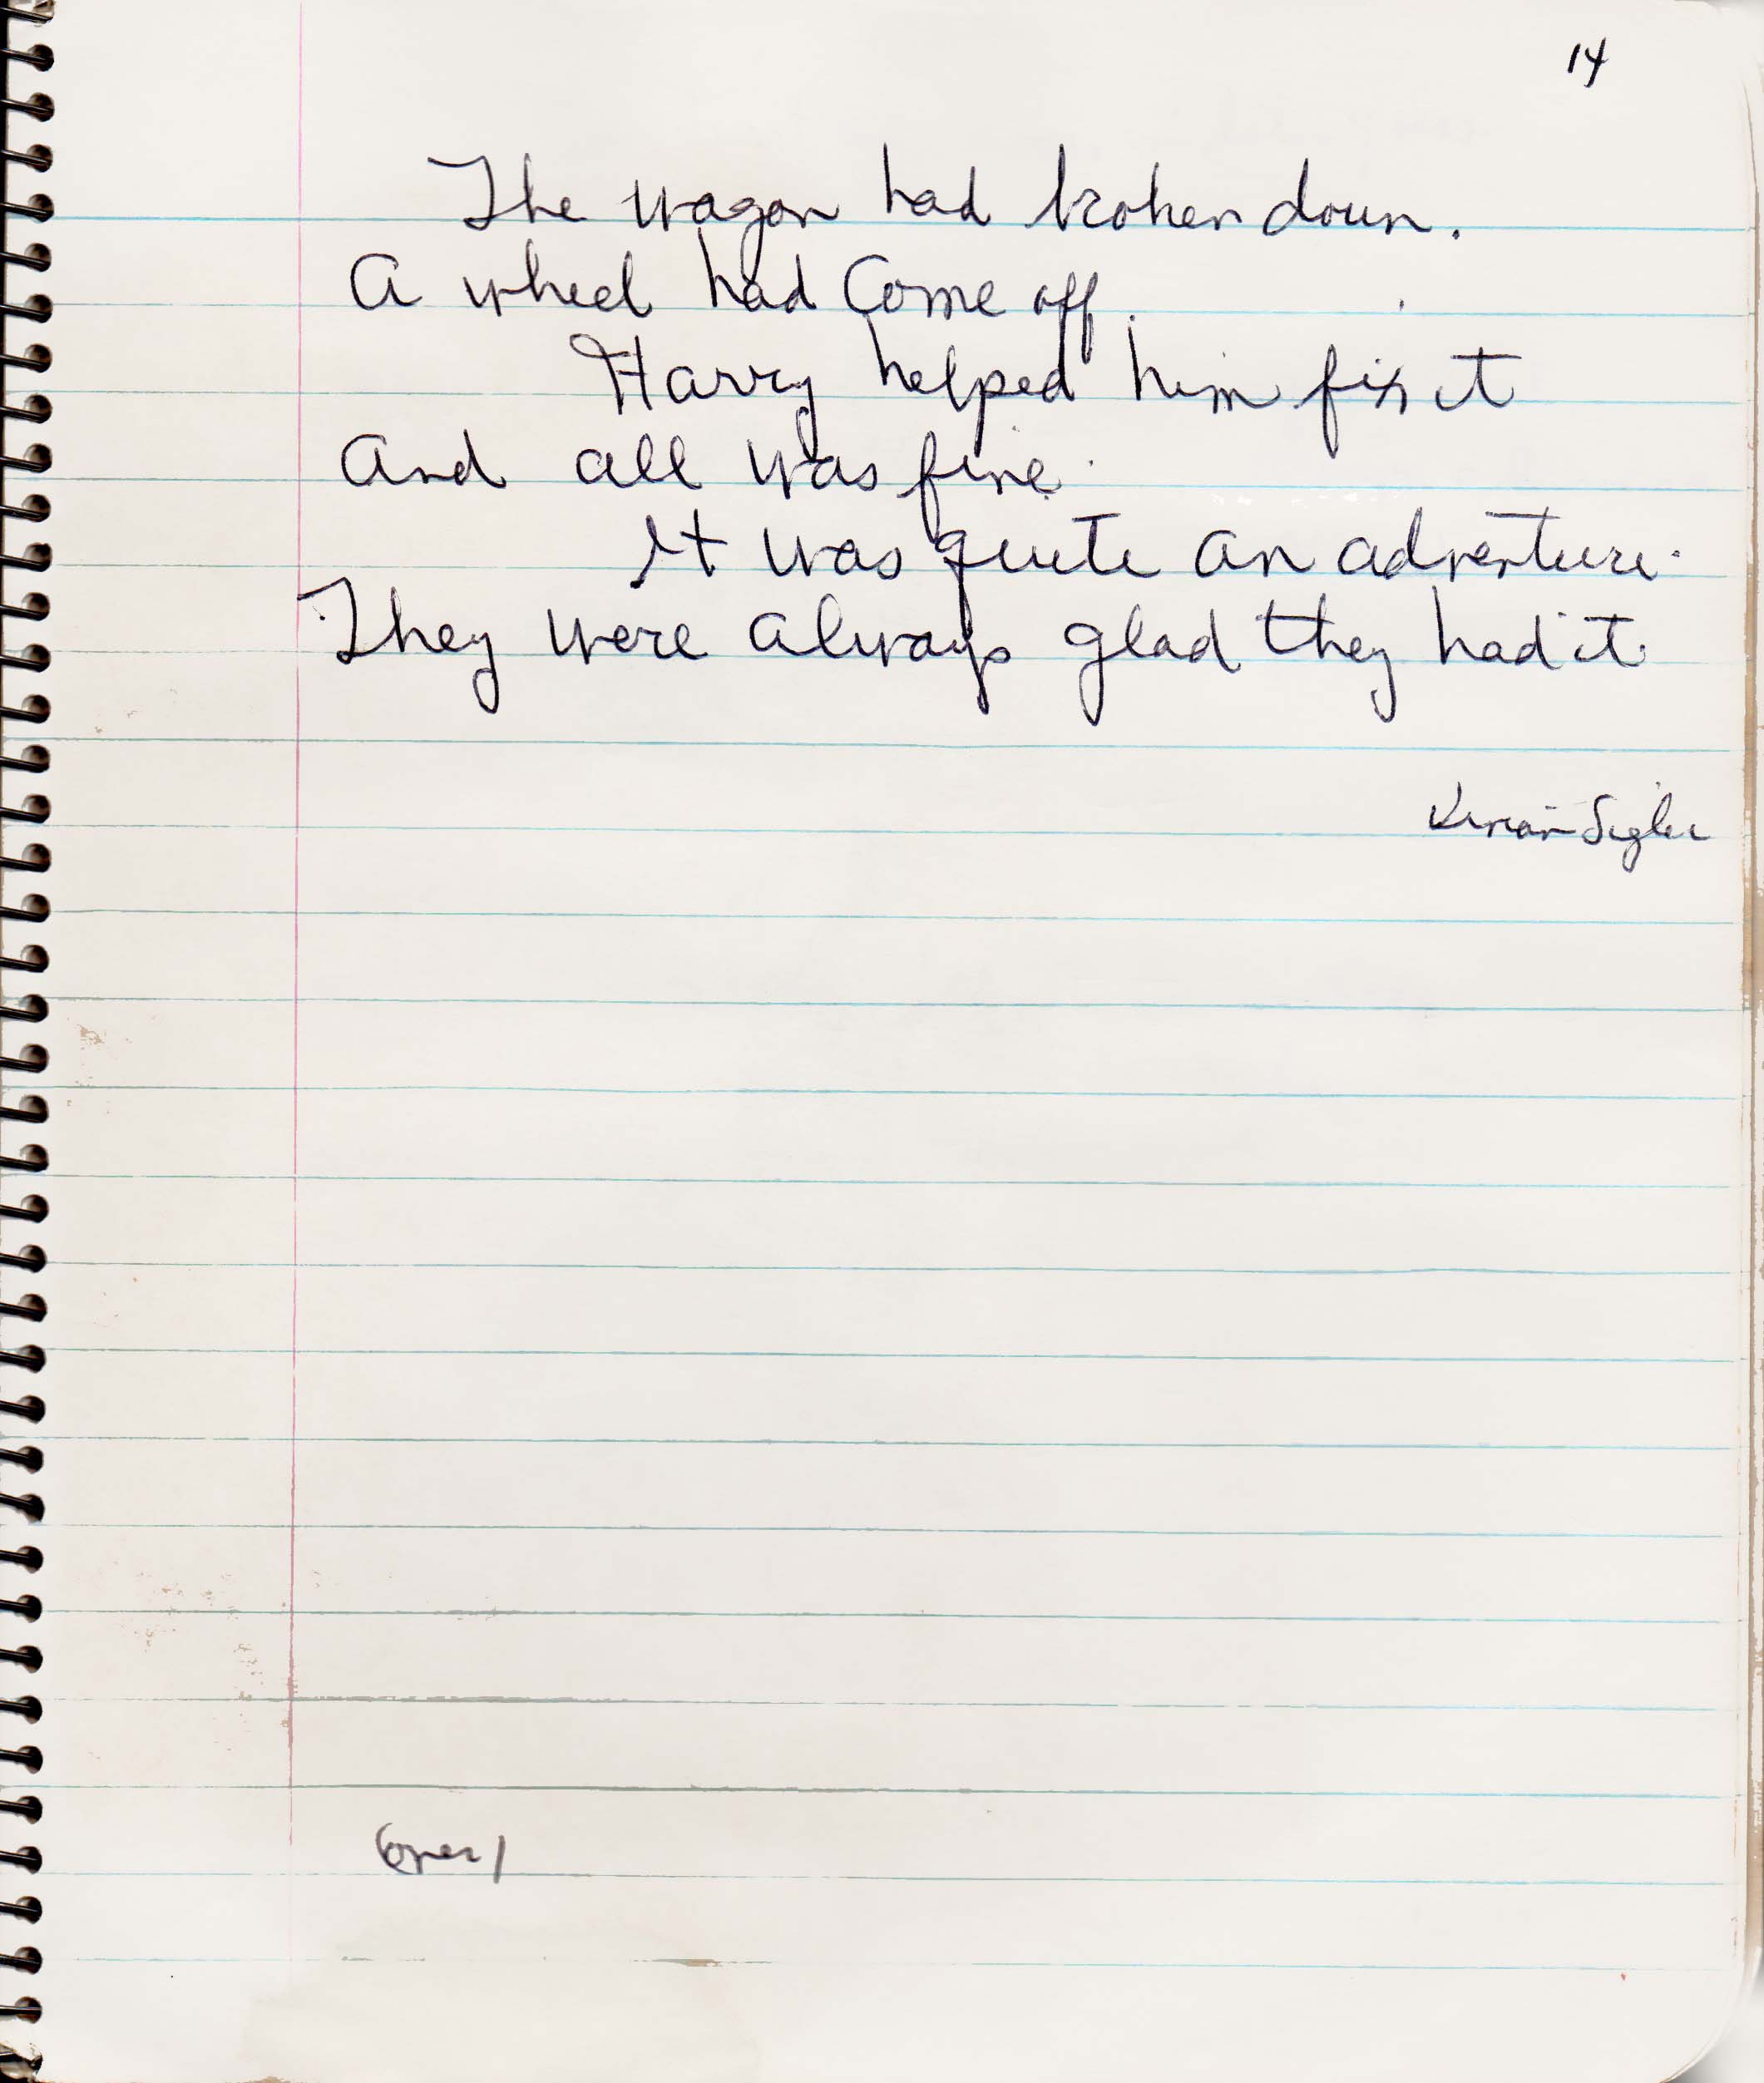 14
The wagon had broken down.
A wheel had Come off.
Harry helped him fix it
And all was fine.
It was quite an adventure.
They were always glad they had it.
(over)